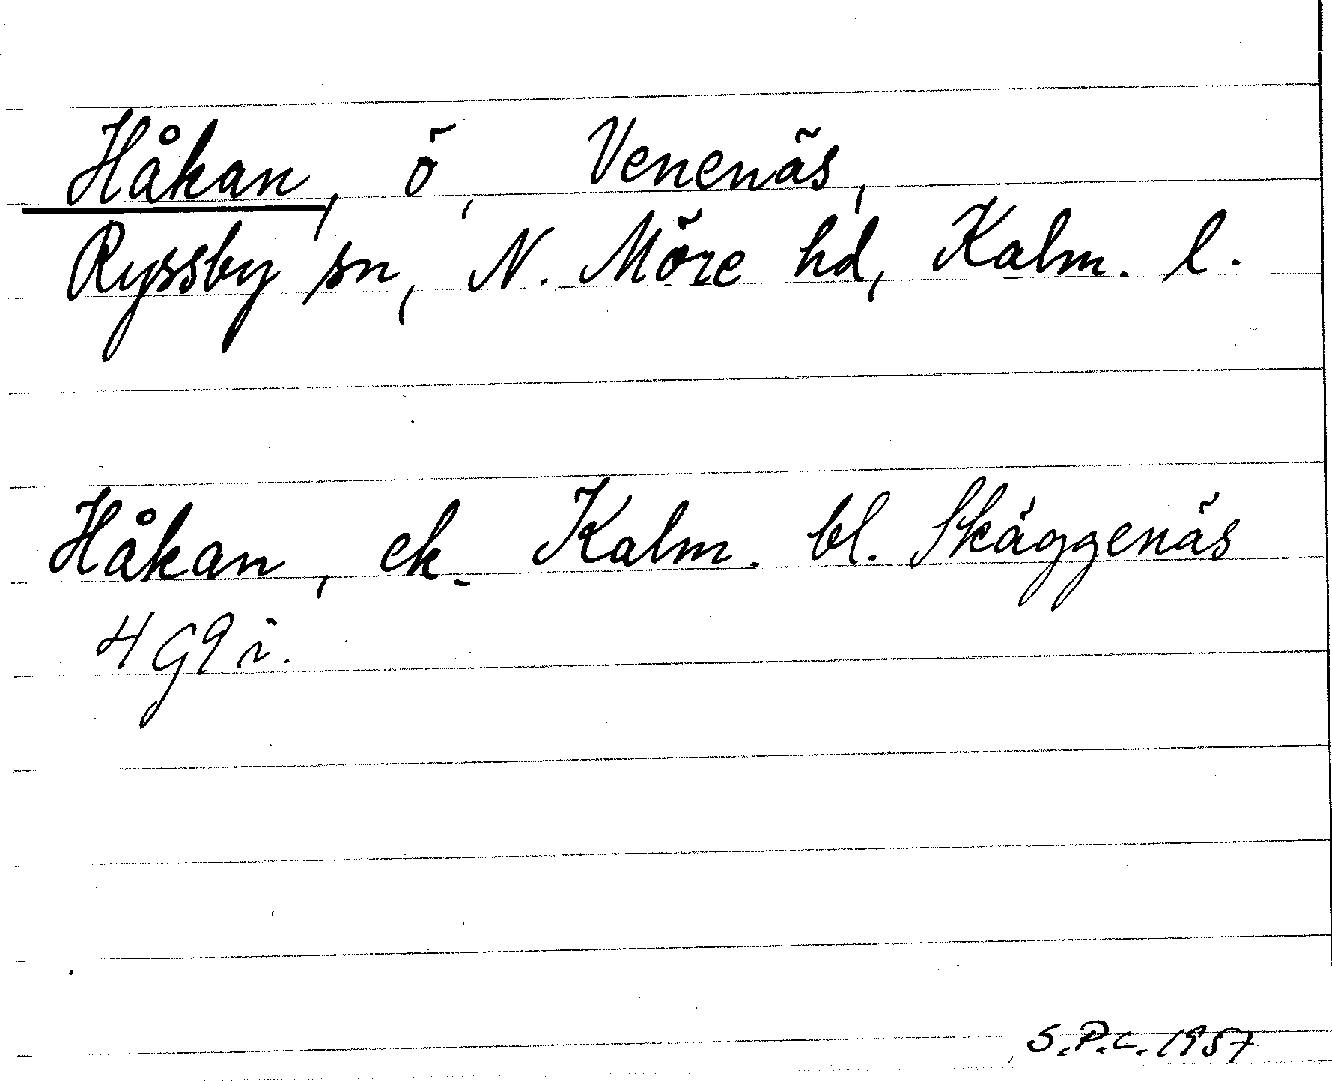 Håkan, ö, Venenäs,
Ryssby sn, N. Möre hd, Kalm. l.
Håkan, ek. Kalm. bl. Skäggenäs
4G9i.
S.P.C. 1957